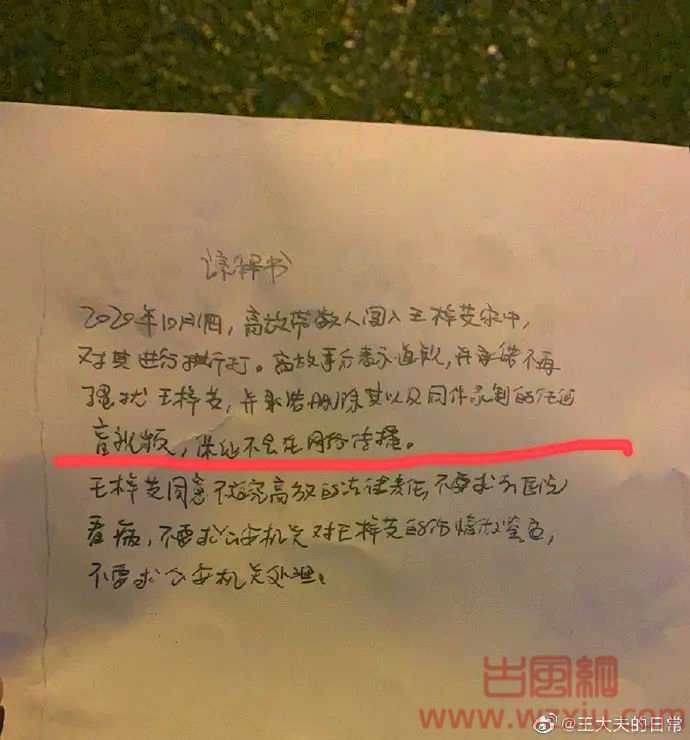 谅解书
2020年10月1日,高放带数人闯入王梓芠家中,
对其进行拼行打。高放事后表示道歉,并承诺不再
骚扰王梓芠,并承诺删除其以及同伴录制的任何
音视频,保证不会在网络传播。
王梓芠同意不追究高放的法律责任,不要求去医院
看病,不要求公安机关对王梓芠的伤情做鉴定,
不要求公安机关处理。
古風網
www.wzxiu.com
@王大夫的日常